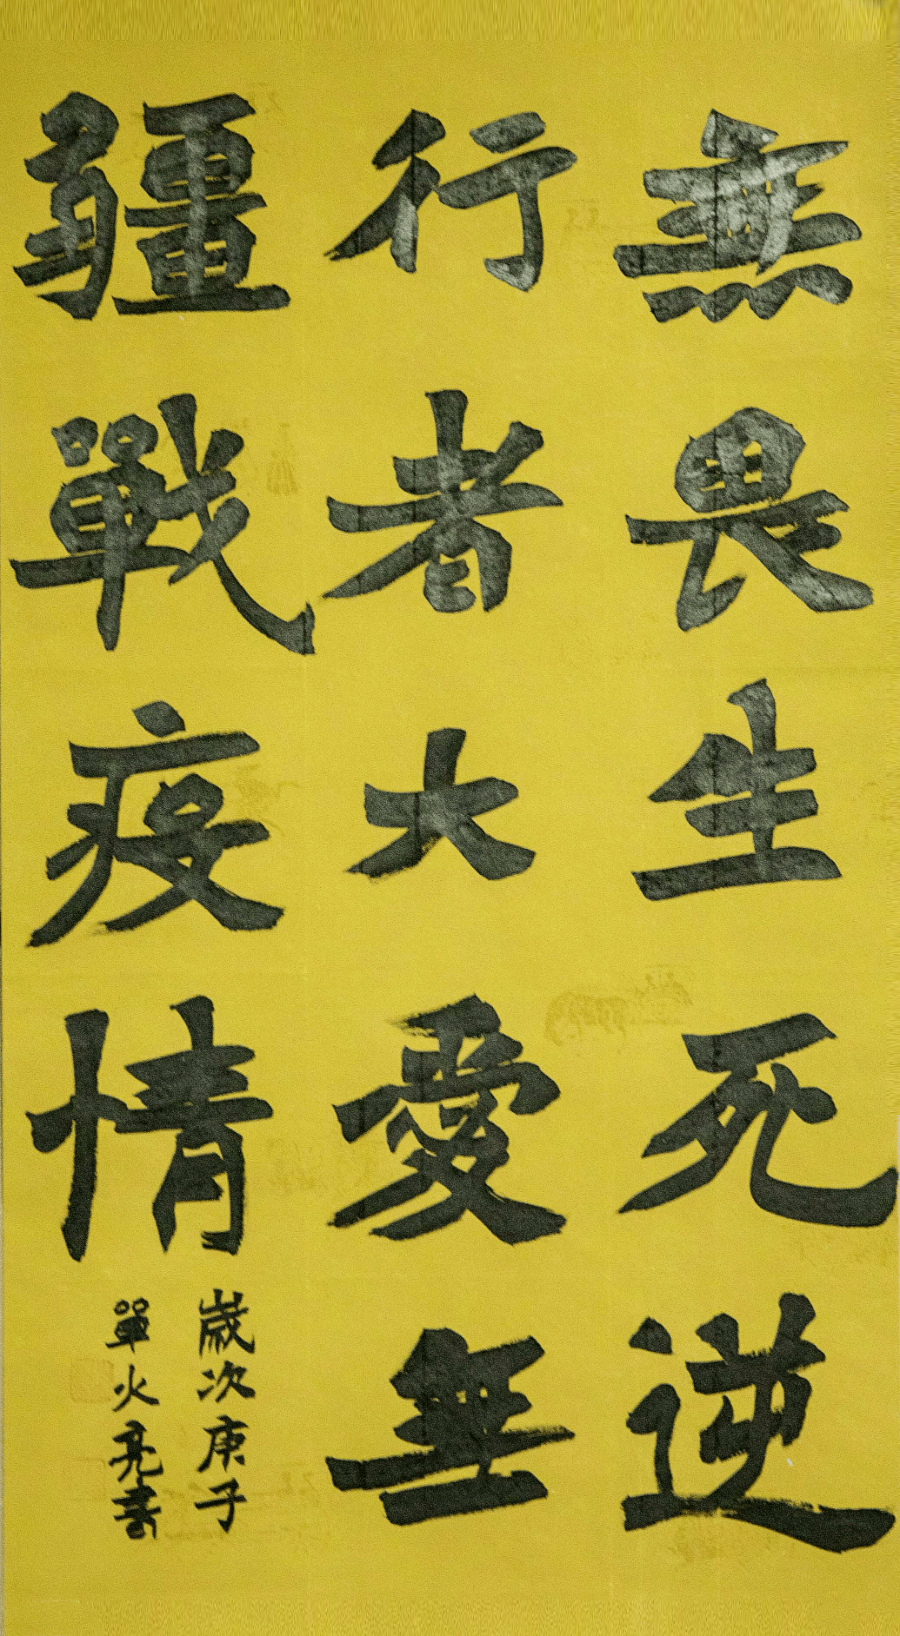 無畏生死逆
行者大愛無
疆戰疫情
歲次庚子
單火亮書